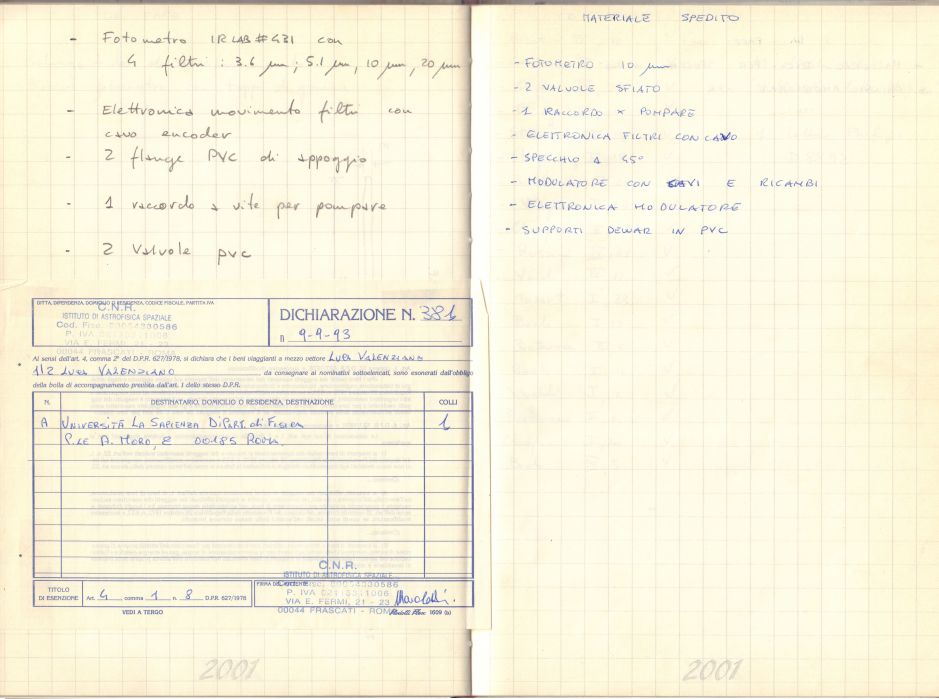 - Fotometro IRLAB #431 con
4 filtri : 3.6 µm ; 5.1 µm, 10 µm, 20 µm
- Elettronica movimento filtri con
cavo encoder
- 2 flange PVC di appoggio
- 1 raccordo a vite per pompare
- 2 Valvole pvc
DITTA, DIPENDENZA, DOMICILIO O RESIDENZA, CODICE FISCALE, PARTITA IVA
C.N.R.
ISTITUTO DI ASTROFISICA SPAZIALE
Cod. Fisc.
P. IVA
VIA E. FERMI, 21 - 23
00044 FRASCATI - ROMA
DICHIARAZIONE N. 381
n 9-9-93
Ai sensi dell'art. 4, comma 2° del D.P.R. 627/1978, si dichiara che i beni viaggianti a mezzo vettore LUCA VALENZIANO
1/2 LUCA VALENZIANO da consegnare ai nominativi sottoelencati, sono esonerati dall'obbligo
della bolla di accompagnamento prevista dall'art. 1 dello stesso D.P.R.
N. DESTINATARIO, DOMICILIO O RESIDENZA, DESTINAZIONE COLLI
A UNIVERSITÀ LA SAPIENZA DIPART. di FISICA 1
P.LE A. MORO, 2 00185 ROMA.
C.N.R.
ISTITUTO DI ASTROFISICA SPAZIALE
P. IVA
VIA E. FERMI, 21 - 23
00044 FRASCATI - ROMA
TITOLO DI ESENZIONE Art. 4 comma 1 n. 8 D.P.R. 627/1978
VEDI A TERGO
1609 (b)
2001
MATERIALE SPEDITO
- FOTOMETRO 10 µm
- 2 VALVOLE SFIATO
- 1 RACCORDO × POMPARE
- ELETTRONICA FILTRI CON CAVO
- SPECCHIO A 45°
- MODULATORE CON CAVI E RICAMBI
- ELETTRONICA MODULATORE
- SUPPORTI DEWAR IN PVC
2001